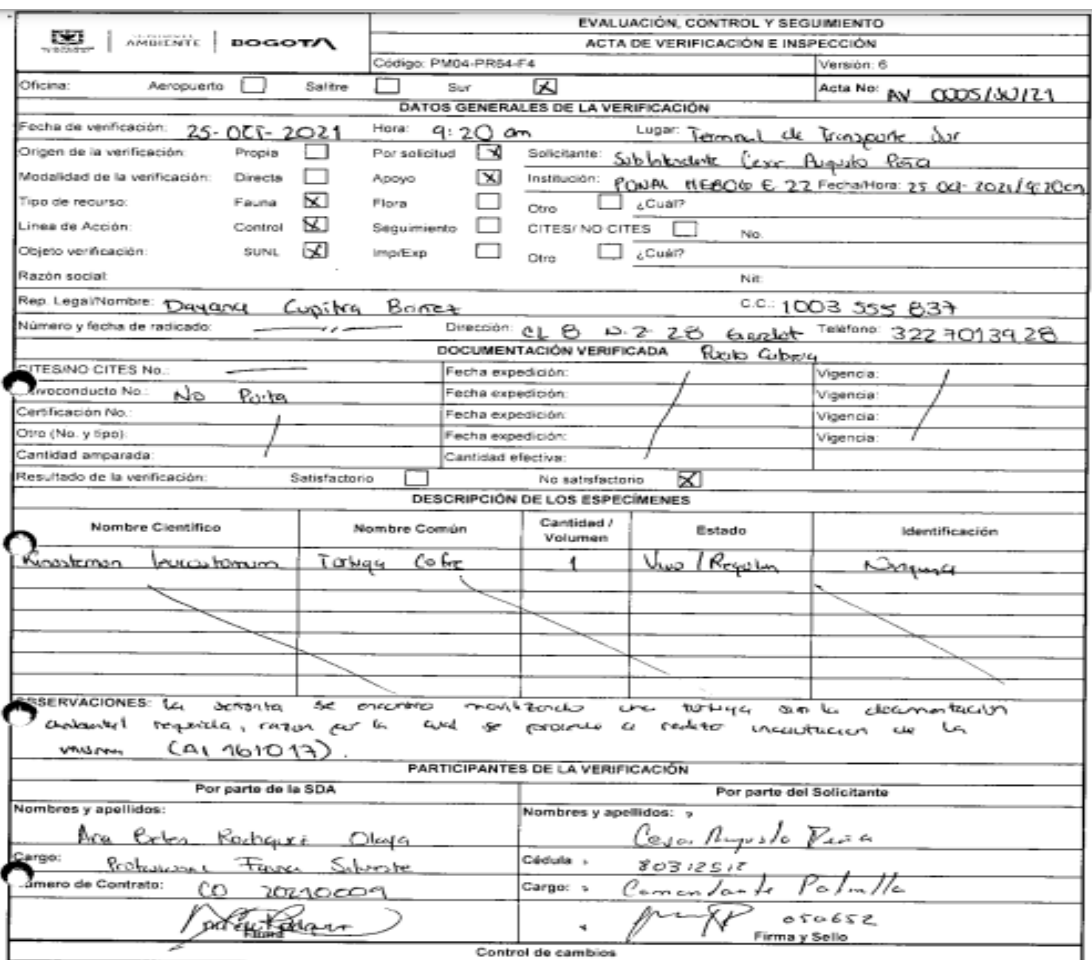 AMBIENTE BOGOTÁ
EVALUACIÓN, CONTROL Y SEGUIMIENTO
ACTA DE VERIFICACIÓN E INSPECCIÓN
Código: PM04-PR64-F4 Versión: 6
Oficina: Aeropuerto Salitre Sur X Acta No: AV 0005/SU/21
DATOS GENERALES DE LA VERIFICACIÓN
Fecha de verificación: 25-OCT-2021 Hora: 9:20 am Lugar: Terminal de Transporte Sur
Origen de la verificación: Propia Por solicitud X Solicitante: Subintendente Cesar Augusto Peña
Modalidad de la verificación: Directa Apoyo X Institución: PONAL MEBOG E 22 Fecha/Hora: 25 Oct-2021/9:20am
Tipo de recurso: Fauna X Flora Otro ¿Cuál?
Linea de Acción: Control X Seguimiento CITES/ NO CITES No.
Objeto verificación: SUNL X Imp/Exp Otro ¿Cuál?
Razón social: Nit:
Rep. Legal/Nombre: Dayana C.C.: 1003 555 837
Número y fecha de radicado: Dirección: CL 8 N. 2 28 Teléfono: 3227013928
DOCUMENTACIÓN VERIFICADA
CITES/NO CITES No.: Fecha expedición: Vigencia:
No Porta Fecha expedición: Vigencia:
Certificación No.: Fecha expedición: Vigencia:
Otro (No. y tipo): Fecha expedición: Vigencia:
Cantidad amparada: Cantidad efectiva:
Resultado de la verificación: Satisfactorio No satisfactorio X
DESCRIPCIÓN DE LOS ESPECÍMENES
Nombre Científico Nombre Común Cantidad / Volumen Estado Identificación
Kinosternon leucostomum Tortuga Cofre 1 Vivo / Regular Ninguna
OBSERVACIONES: La señorita se encontro movilizando una tortuga sin la documentación
ambiental requerida, razon por la cual se procede a incautacion de la
misma (AI 161017).
PARTICIPANTES DE LA VERIFICACIÓN
Por parte de la SDA Por parte del Solicitante
Nombres y apellidos: Nombres y apellidos:
Ana Rodriguez Olaya Cesar Augusto Peña
Cargo: Profesional Fauna Silvestre Cédula 80312512
Número de Contrato: CO 20210009 Cargo: Comandante Patrulla
050652
Firma Firma y Sello
Control de cambios